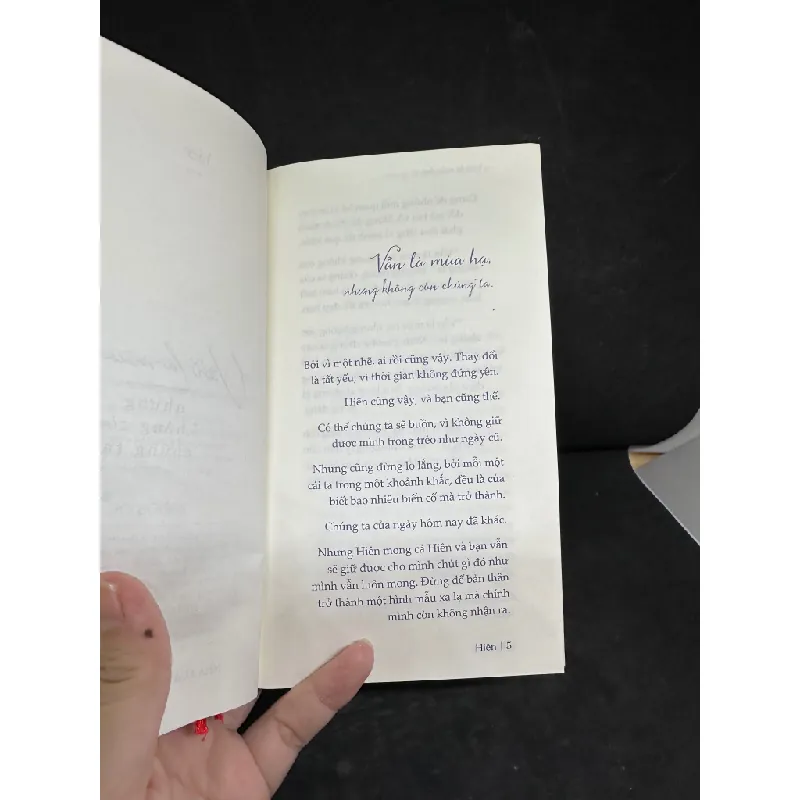 Vẫn là mùa hạ,
nhưng không còn chúng ta.
Bởi vì một nhẽ, ai rồi cũng vậy. Thay đổi
là tất yếu, vì thời gian không đứng yên.
Hiên cũng vậy, và bạn cũng thế.
Có thể chúng ta sẽ buồn, vì không giữ
được mình trong trẻo như ngày cũ.
Nhưng cũng đừng lo lắng, bởi mỗi một
cái ta trong một khoảnh khắc, đều là của
biết bao nhiêu biến cố mà trở thành.
Chúng ta của ngày hôm nay đã khác.
Nhưng Hiên mong cả Hiên và bạn vẫn
sẽ giữ được cho mình chút gì đó như
mình vẫn luôn mong. Đừng để bản thân
trở thành một hình mẫu xa lạ mà chính
mình còn không nhận ra.
Hiên | 5